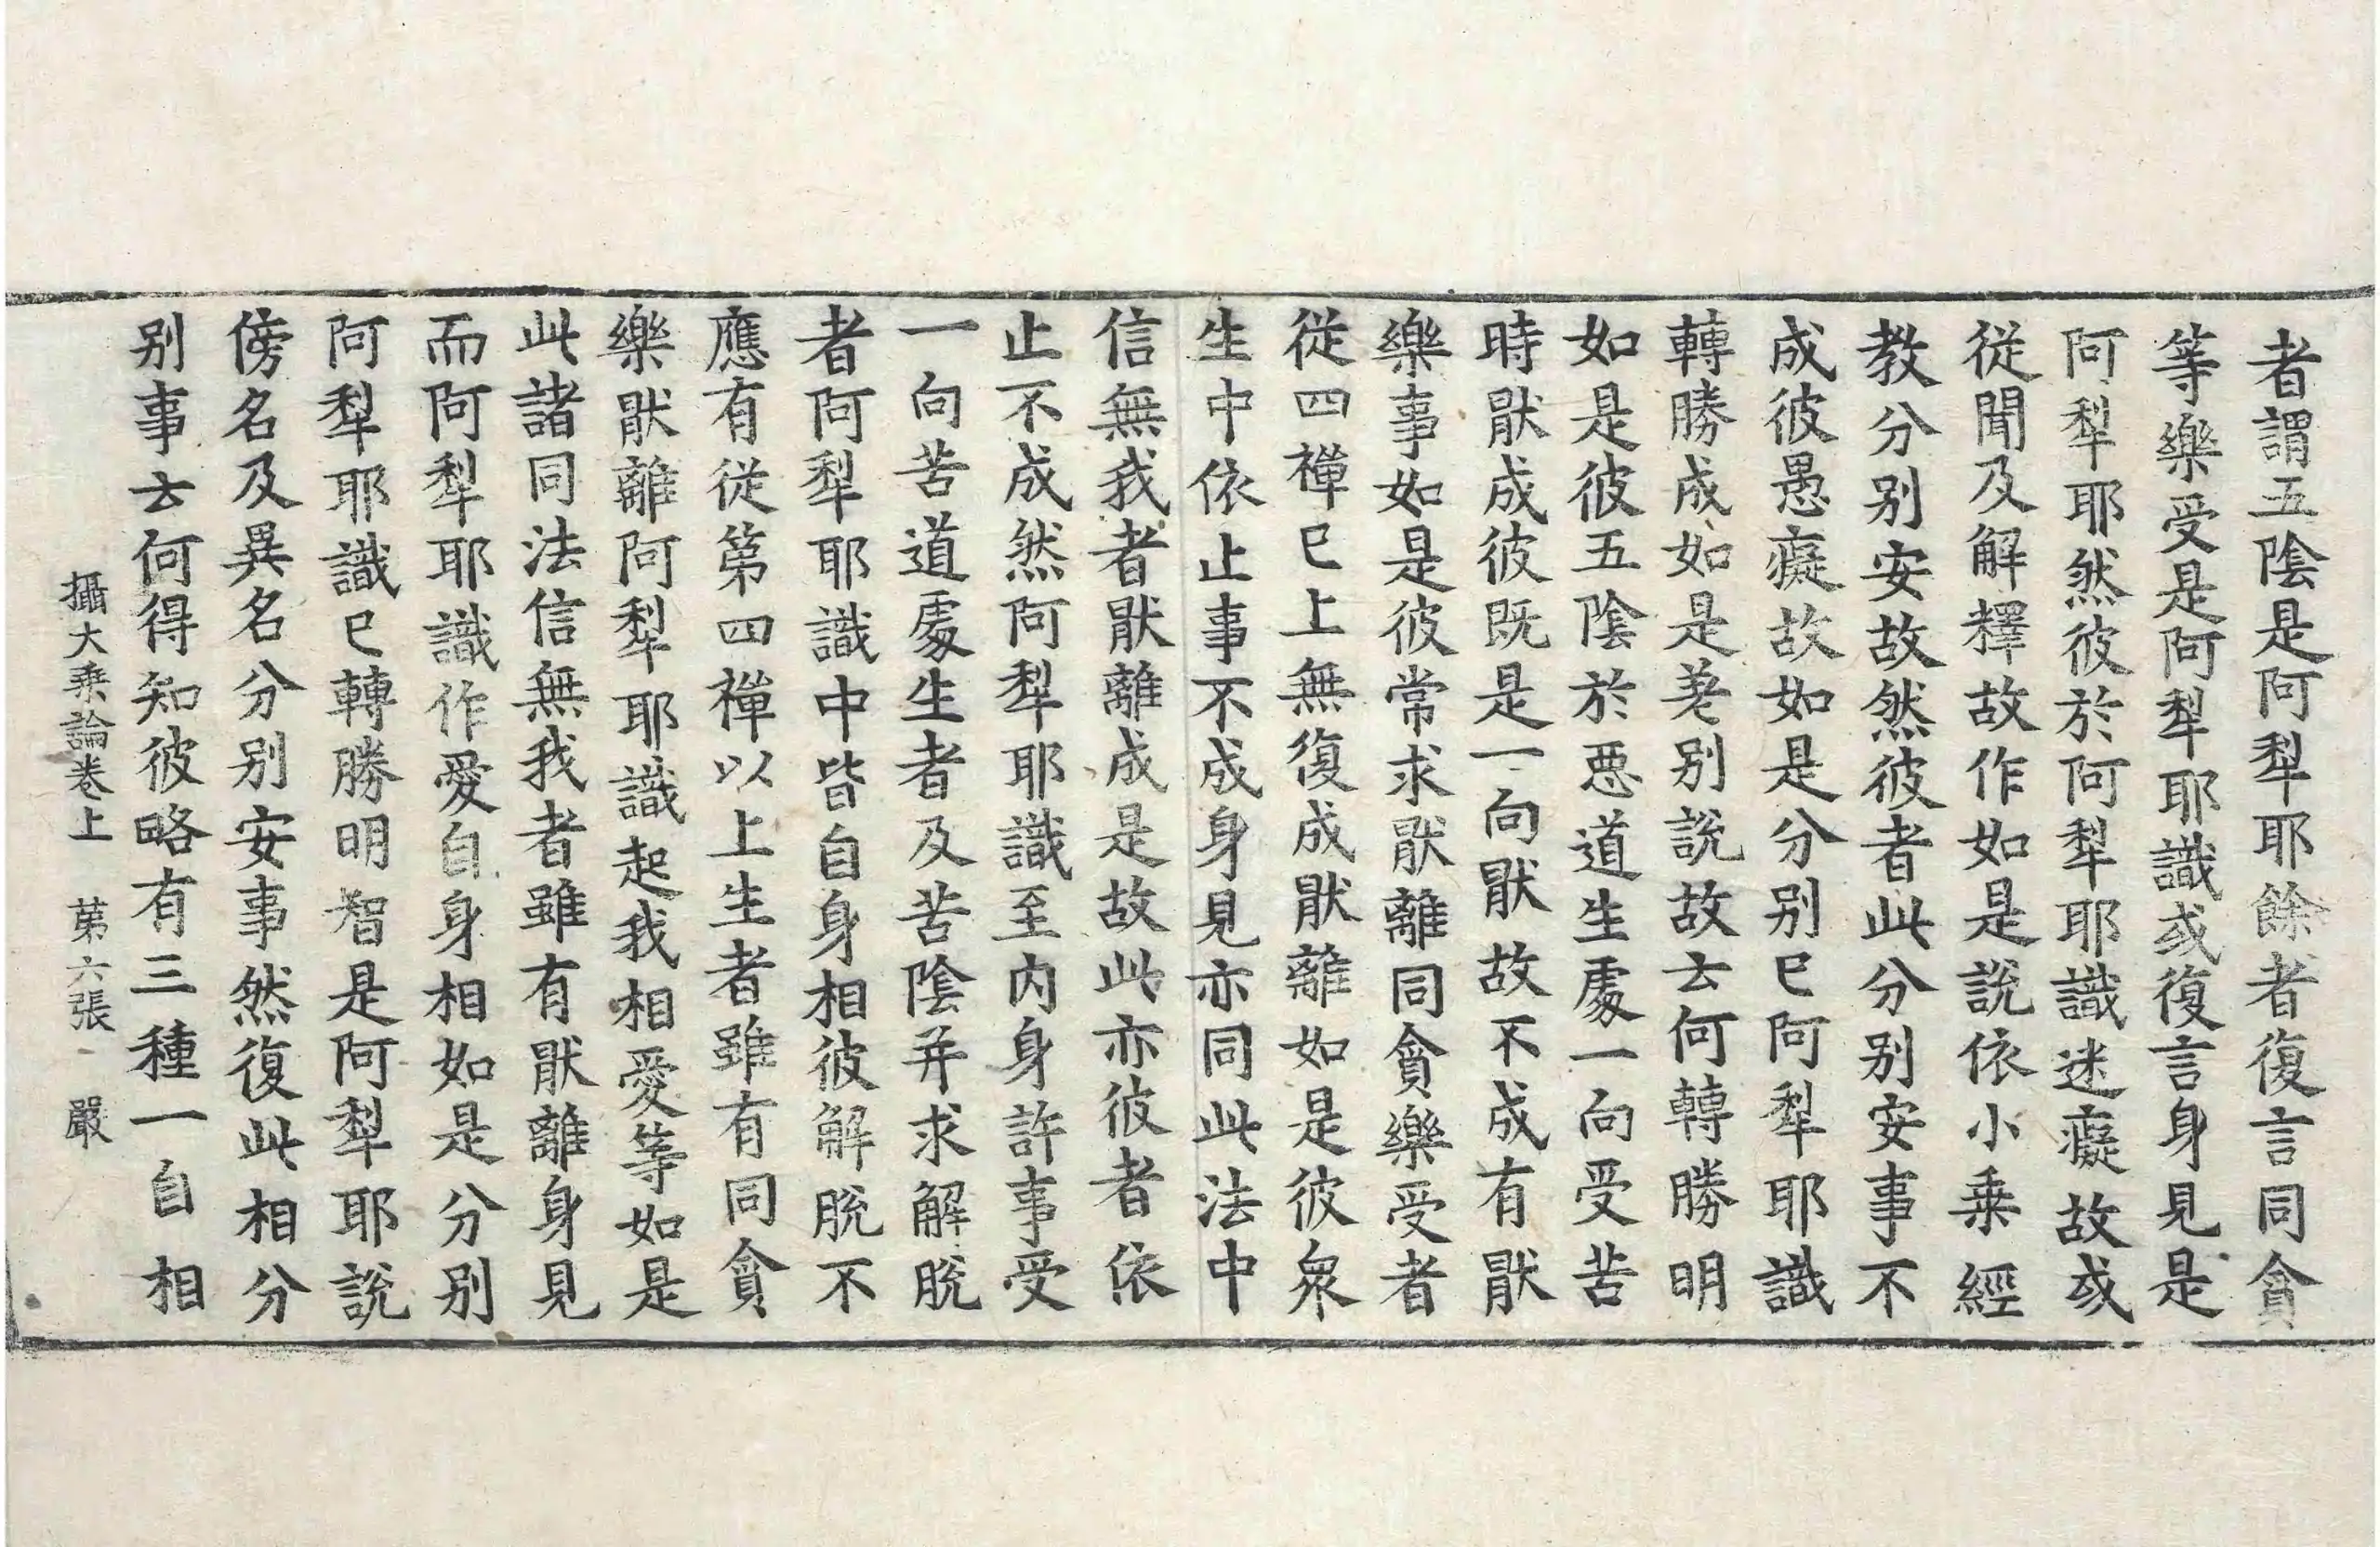 者謂五陰是阿犁耶餘者復言同貪
等樂受是阿犁耶識或復言身見是
阿犁耶然彼於阿犁耶識迷癡故或
從聞及解釋故作如是說依小乗經
教分别安故然彼者此分别安事不
成彼愚癡故如是分别已阿犁耶識
轉勝成如是差别說故云何轉勝明
如是彼五陰於惡道生處一向受苦
時猒成彼既是一向猒故不成有猒
樂事如是彼常求猒離同貪樂受者
從四禪已上無復成猒離如是彼衆
生中依止事不成身見亦同此法中
信無我者猒離成是故此亦彼者依
止不成然阿犁耶識至内身許事受
一向苦道處生者及苦陰并求解脫
者阿犁耶識中皆自身相彼解脫不
應有從第四禪以上生者雖有同貪
樂猒離阿犁耶識起我相愛等如是
此諸同法信無我者雖有猒離身見
而阿犁耶識作愛自身相如是分别
阿犁耶識已轉勝明智是阿犁耶說
傍名及異名分别安事然復此相分
别事云何得知彼略有三種一自相
攝大乗論卷上 第六張 嚴